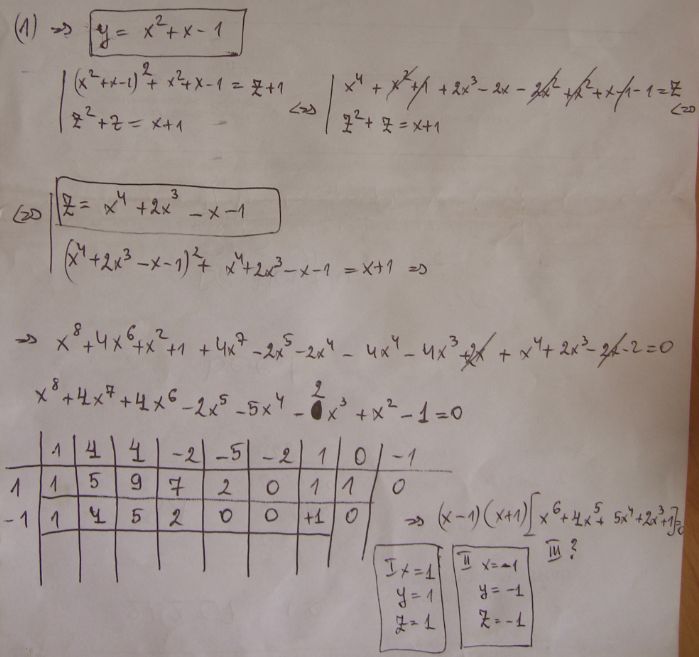 (1) => y = x² + x - 1
(x²+x-1)² + x²+x-1 = z+1 <=> x⁴ + x² + 1 + 2x³ - 2x - 2x² + x² + x - 1 - 1 = z <=>
z² + z = x+1 z² + z = x+1
<=> z = x⁴ + 2x³ - x - 1
(x⁴+2x³-x-1)² + x⁴+2x³-x-1 = x+1 =>
=> x⁸+4x⁶+x²+1 + 4x⁷ - 2x⁵ - 2x⁴ - 4x⁴ - 4x³ + 2x + x⁴ + 2x³ - 2x - 2 = 0
x⁸ + 4x⁷ + 4x⁶ - 2x⁵ - 5x⁴ - 2x³ + x² - 1 = 0
1 4 4 -2 -5 -2 1 0 -1
1 1 5 9 7 2 0 1 1 0
-1 1 4 5 2 0 0 +1 0
=> (x-1)(x+1)[x⁶+4x⁵+5x⁴+2x³+1]=0
III ?
I x=1
y=1
z=1
II x=-1
y=-1
z=-1